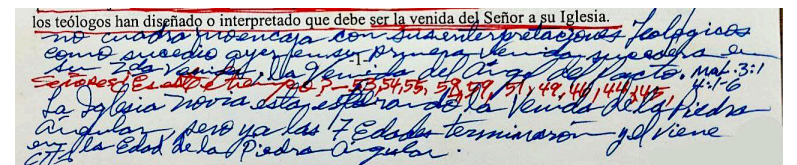 los teólogos han diseñado o interpretado que debe ser la venida del Señor a su Iglesia.
no cuadra no encaja con sus interpretaciones Teológicos
como sucedio ayer en su primera Venida sucedera en
su 2da Venida, La Venida del Angel del Pacto. Mal. 3:1
-1-
Señores: Es este el tiempo P.- 53, 54, 55, 58, 59, 51, 49, 46, 44, 45, 4:1-6
La Iglesia novia esta esperando la Venida de la Piedra
Angular, pero ya las 7 Edades terminaron y el viene
en la Edad de la Piedra Angular.